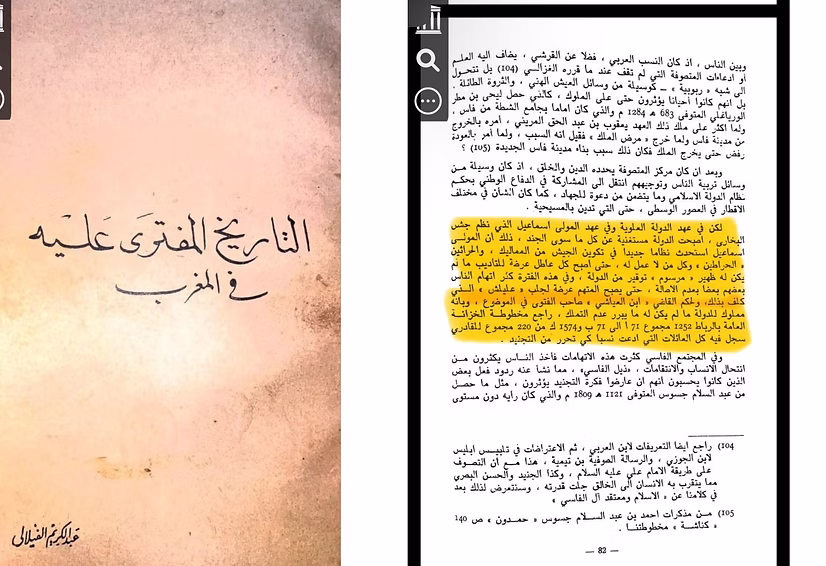 التاريخ المفترى عليه
في المغرب
عبد الكريم الفيلالي
وبين الناس ، اذ كان النسب العربي ، فضلا عن القرشي ، يضاف اليه العلم
أو ادعاءات المتصوفة التي لم تقف عند ما قرره الغزالي (104) بل تتحول
الى شبه « ربوبية » ــ كوسيلة من وسائل العيش الهني ، والثروة الطائلة .
بل انهم كانوا أحيانا يؤثرون حتى على الملوك ، كالذي حصل ليحى بن مطر
الورياغلي المتوفى 683 هـ 1284 م والذي كان اماما بجامع الشطة من فاس ،
ولما اكثر على ملك ذلك العهد يعقوب بن عبد الحق المريني ، امره بالخروج
من مدينة فاس ولما خرج « مرض الملك » فقيل انه السبب ، ولما أمر بالعودة
رفض حتى يخرج الملك فكان ذلك سبب بناء مدينة فاس الجديدة (105) ؟
وبعد ان كان مركز المتصوفة يحدده الدين والخلق ، اذ كان وسيلة من
وسائل تربية الناس وتوجيههم انتقل الى المشاركة في الدفاع الوطني بحكم
نظام الدولة الاسلامي وما يتضمن من دعوة للجهاد ، كما كان الشأن في مختلف
الاقطار في العصور الوسطى ، حتى التي تدين بالمسيحية .
لكن في عهد الدولة العلوية وفي عهد المولى اسماعيل الذي نظم جش
البخارى ، أصبحت الدولة مستغنية عن كل ما سوى الجند ، ذلك أن المولى
اسماعيل استحدث نظاما جديدا في تكوين الجيش من المماليك ، والحراثين
« الحراطين » وكل من لا عمل له ، حتى أصبح كل عاطل عرضة للتأديب ما لم
يكن له ظهير « مرسوم » توقير من الدولة ، وفي هذه الفترة كثر اتهام الناس
بعضهم بعضا بعدم الاصالة ، حتى يصبح المتهم عرضة لجلب « عليلش » الذي
كلف بذلك، وحكم القاضي « ابن العياشي » صاحب الفتوى في الموضوع ، وبأنه
مملوك للدولة ما لم يكن له ما يبرر عدم التملك ، راجع مخطوطة الخزانة
العامة بالرباط 1252 مجموع 71 أ الى 71 ب و1574 ك من 220 مجموع للقادري
سجل فيه كل العائلات التي ادعت نسبا كي تحرر من التجنيد .
وفي المجتمع الفاسي كثرت هذه الاتهامات فأخذ الناس يكثرون من
انتحال الانساب والانتقامات ، «ذيل الفاسي» ، مما نشأ عنه ردود فعل بعض
الذين كانوا يحسبون أنهم ان عارضوا فكرة التجنيد يؤثرون ، مثل ما حصل
من عبد السلام جسوس المتوفى 1121 هـ 1809 م والذي كان رايه دون مستوى
(104) راجع ايضا التعريفات لابن العربي ، ثم الاعتراضات في تلبيس ابليس
لابن الجوزي ، والرسالة الصوفية بن تيمية ، هذا مع أن التصوف
على طريقة الامام علي عليه السلام ، وكذا الجنيد والحسن البصري
مما يتقرب به الانسان الى الخالق جلت قدرته ، وسنتعرض لذلك بعد
في كلامنا عن « الاسلام ومعتقد آل الفاسي »
(105) من مذكرات احمد بن عبد السلام جسوس « حمدون » ص 140
« كناشة » مخطوطتنا .
— 82 —